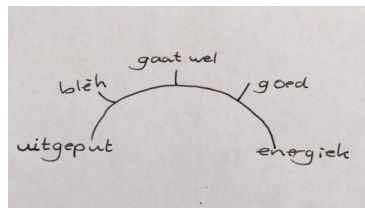 uitgeput
blèh
gaat wel
goed
energiek